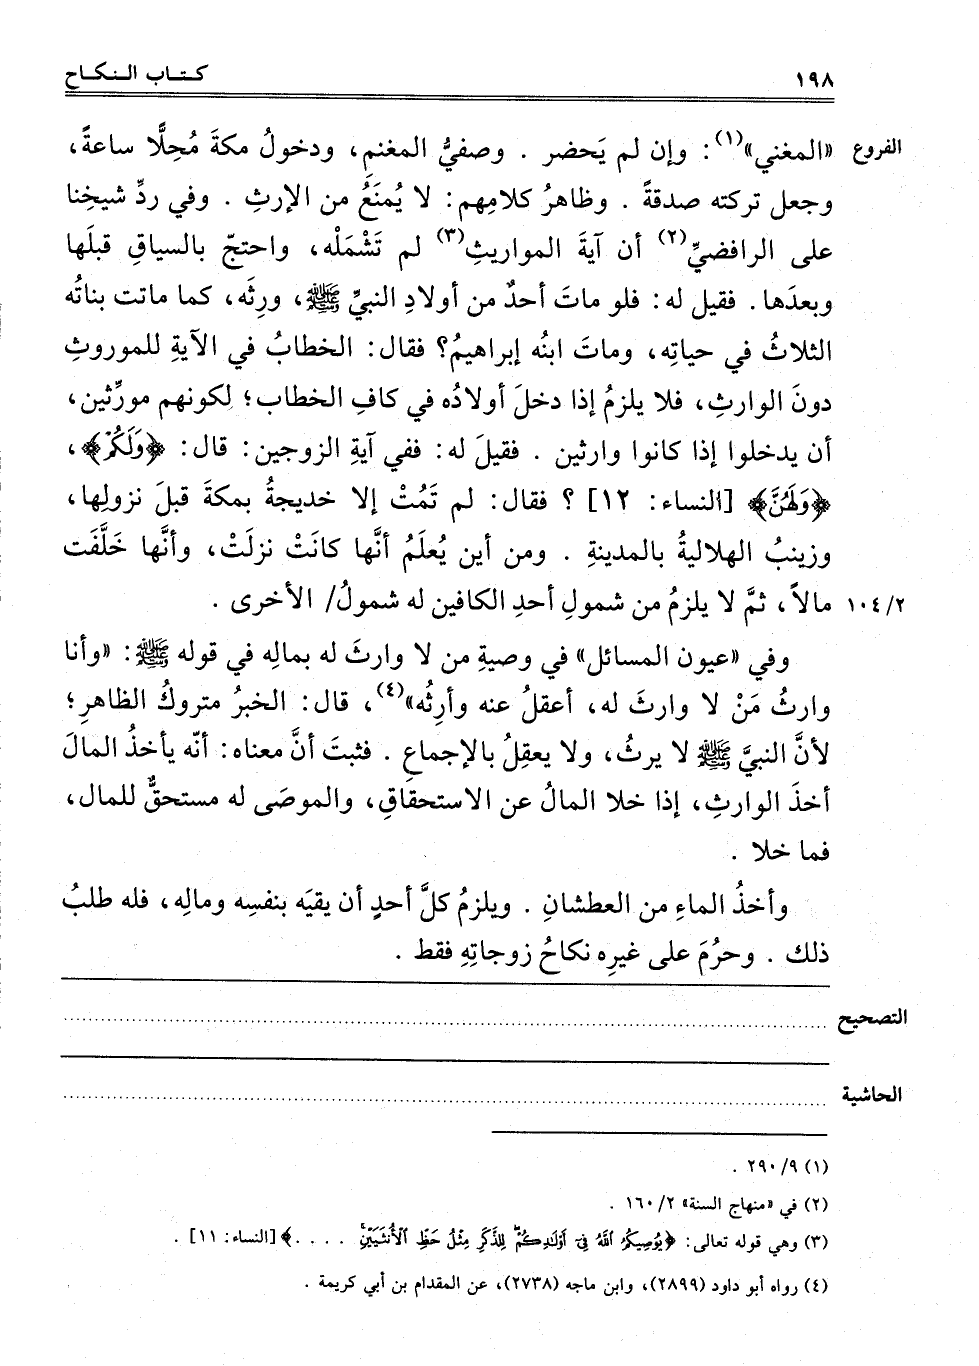 ١٩٨ كتاب النكاح
الفروع «المغني»(١): وإن لم يَحضر . وصفيُّ المغنمِ، ودخولُ مكةَ مُحِلًّا ساعةً،
وجعل تركته صدقةً . وظاهرُ كلامِهم: لا يُمنَعُ من الإرثِ . وفي ردِّ شيخِنا
على الرافضيِّ(٢) أن آيةَ المواريثِ(٣) لم تَشْمَلْه، واحتجّ بالسياقِ قبلَها
وبعدَها. فقيل له: فلو ماتَ أحدٌ من أولادِ النبيِّ ﷺ، ورِثَه، كما ماتت بناتُه
الثلاثُ في حياتِه، وماتَ ابنُه إبراهيمُ؟ فقال: الخطابُ في الآيةِ للموروثِ
دونَ الوارثِ، فلا يلزمُ إذا دخلَ أولادُه في كافِ الخطاب؛ لِكونهم مورِّثين،
أن يدخلوا إذا كانوا وارثين . فقيلَ له: ففي آيةِ الزوجين: قال: ﴿وَلَكُمْ﴾،
﴿وَلَهُنَّ﴾ [النساء: ١٢] ؟ فقال: لم تَمُتْ إلا خديجةُ بمكةَ قبلَ نزولِها،
وزينبُ الهلاليةُ بالمدينةِ . ومن أين يُعلَمُ أنَّها كانَتْ نزلَتْ، وأنَّها خَلَّفَت
١٠٤/٢ مالاً، ثمَّ لا يلزمُ من شمولِ أحدِ الكافين له شمولُ/ الأخرى .
وفي «عيون المسائل» في وصيةِ من لا وارثَ له بمالِه في قوله ﷺ: «وأنا
وارثُ مَنْ لا وارثَ له، أعقلُ عنه وأرِثُه»(٤)، قال: الخبرُ متروكُ الظاهرِ؛
لأنَّ النبيَّ ﷺ لا يرثُ، ولا يعقِلُ بالإجماعِ . فثبتَ أنَّ معناه: أنّه يأخذُ المالَ
أخذَ الوارثِ، إذا خلا المالُ عن الاستحقاقِ، والموصَى له مستحقٌّ للمال،
فما خلا .
وأخذُ الماءِ من العطشانِ . ويلزمُ كلَّ أحدٍ أن يقيَه بنفسِه ومالِه، فله طلبُ
ذلك . وحرُمَ على غيرِه نكاحُ زوجاتِهِ فقط .
التصحيح
الحاشية
(١) ٢٩٠/٩ .
(٢) في «منهاج السنة» ١٦٠/٢ .
(٣) وهي قوله تعالى: ﴿يُوصِيكُمُ ٱللَّهُ فِىٓ أَوْلَـٰدِكُمْ لِلذَّكَرِ مِثْلُ حَظِّ ٱلْأُنثَيَيْنِ . . . .﴾ [النساء: ١١] .
(٤) رواه أبو داود (٢٨٩٩)، وابن ماجه (٢٧٣٨)، عن المقدام بن أبي كريمة .